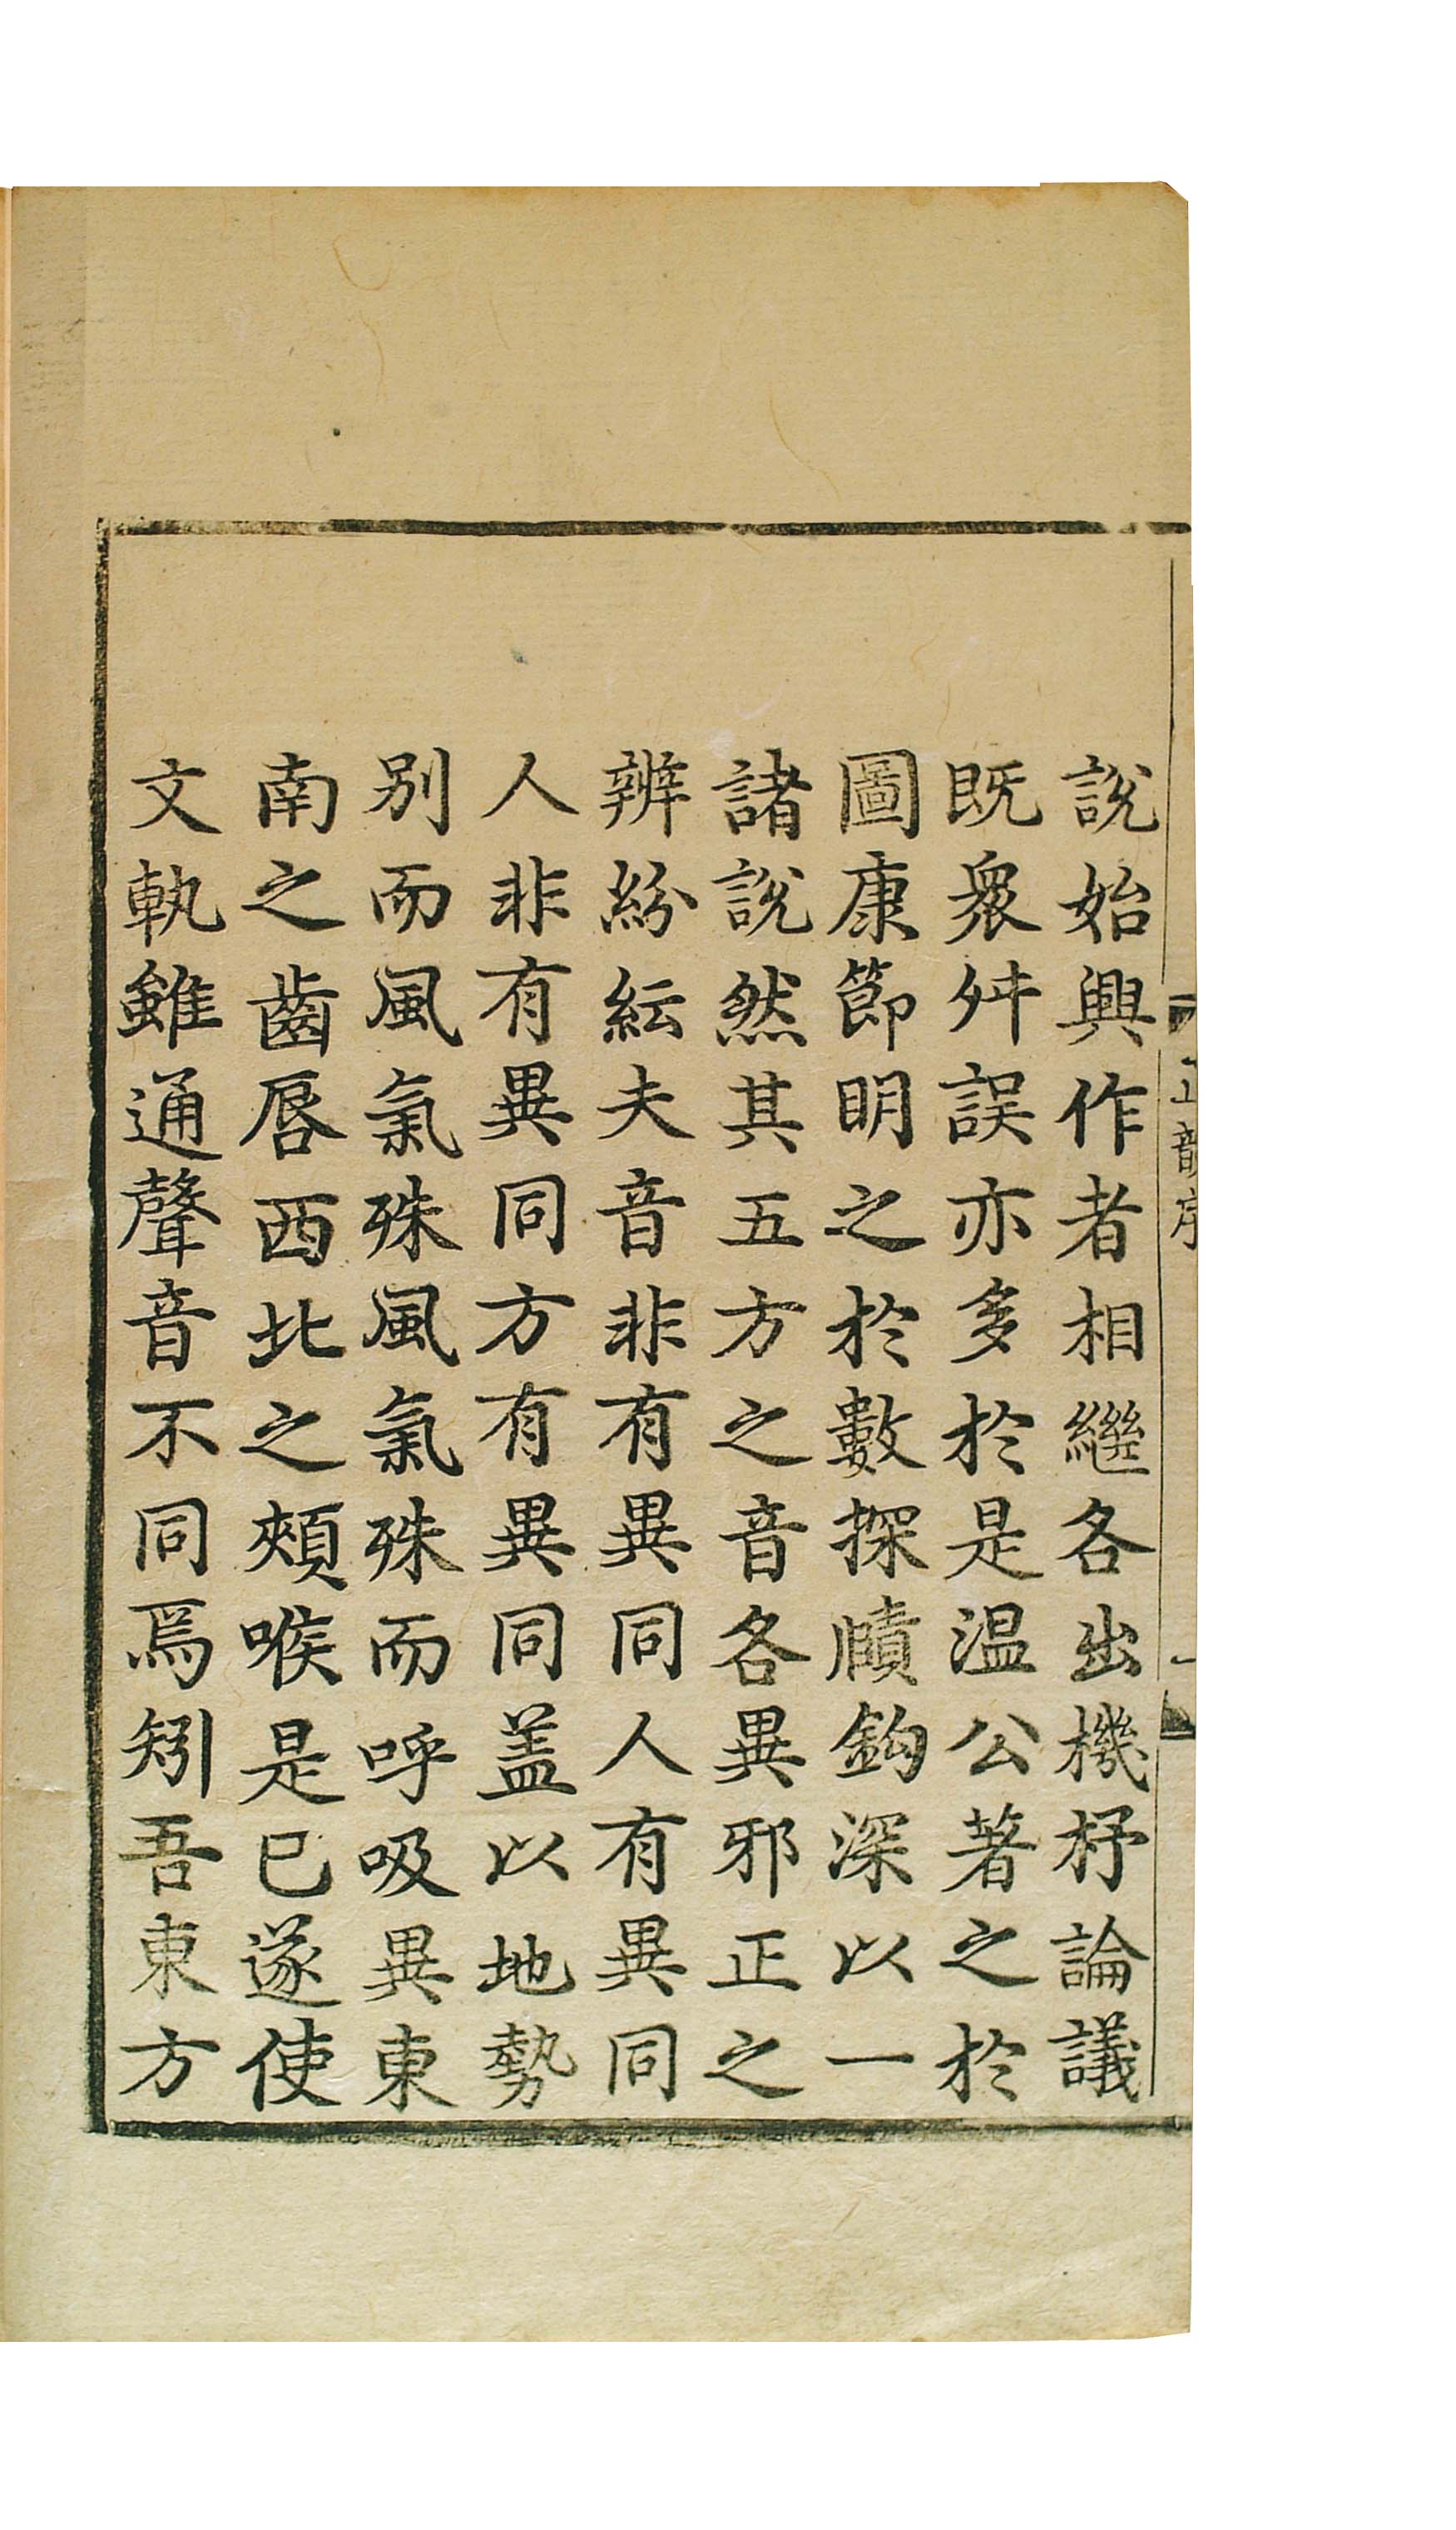 說始興作者相繼各出機杼論議
既衆舛誤亦多於是温公著之於
圖康節明之於數探賾鈎深以一
諸說然其五方之音各異邪正之
辨紛紜夫音非有異同人有異同
人非有異同方有異同盖以地勢
别而風氣殊風氣殊而呼吸異東
南之齒唇西北之頰喉是已遂使
文軌雖通聲音不同焉矧吾東方
正韻序
一